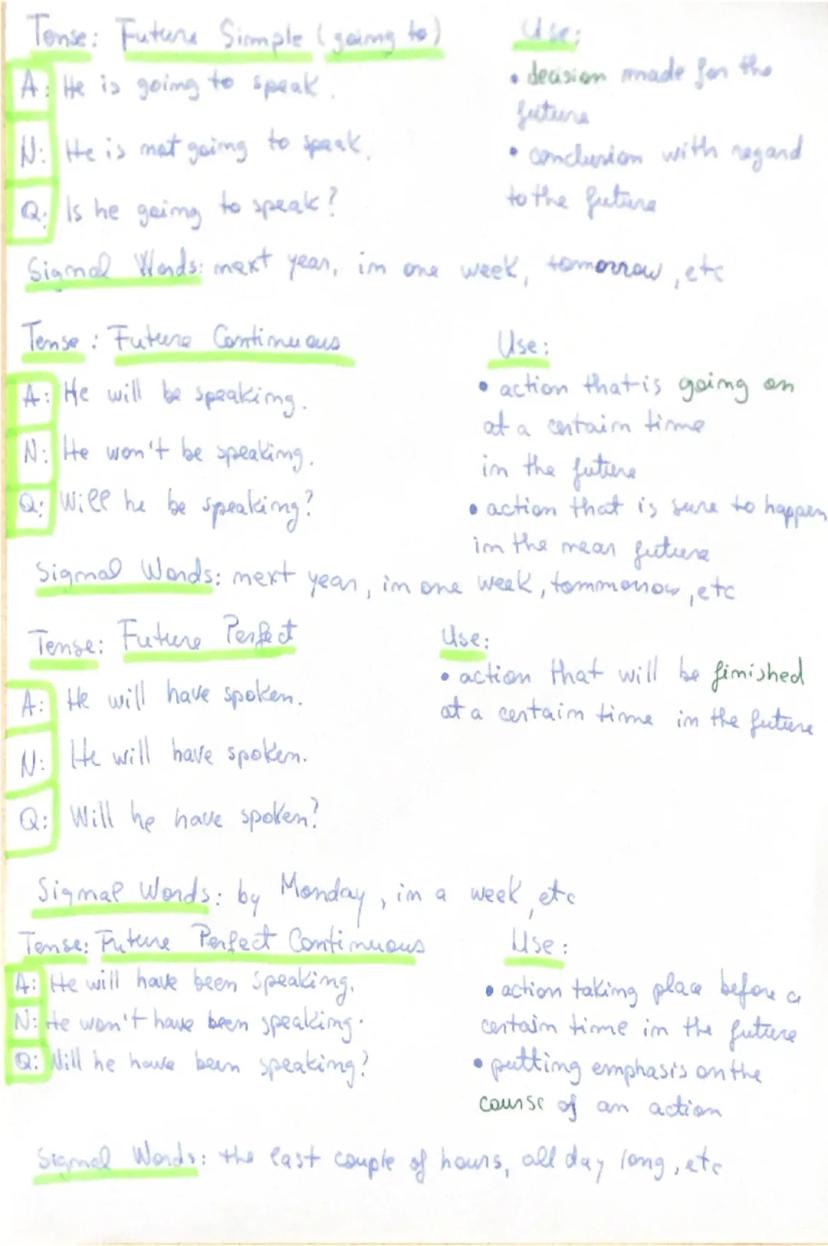 Tense: Future Simple (going to)
Use:
A: He is going to speak.
• decision made for the
future
N: He is not going to speak.
• conclusion with regard
to the future
Q: Is he going to speak?
Signal Words: next year, in one week, tomorrow, etc
Tense: Future Continuous
Use:
A: He will be speaking.
• action that is going on
at a certain time
in the future
N: He won't be speaking.
Q: Will he be speaking?
• action that is sure to happen
in the near future
Signal Words: next year, in one week, tommorrow, etc
Tense: Future Perfect
Use:
• action that will be finished
at a certain time in the future
A: He will have spoken.
N: He will have spoken.
Q: Will he have spoken?
Signal Words: by Monday, in a week, etc
Tense: Future Perfect Continuous
Use:
A: He will have been speaking.
N: He won't have been speaking.
Q: Will he have been speaking?
• action taking place before a
certain time in the future
• putting emphasis on the
course of an action
Signal Words: the last couple of hours, all day long, etc